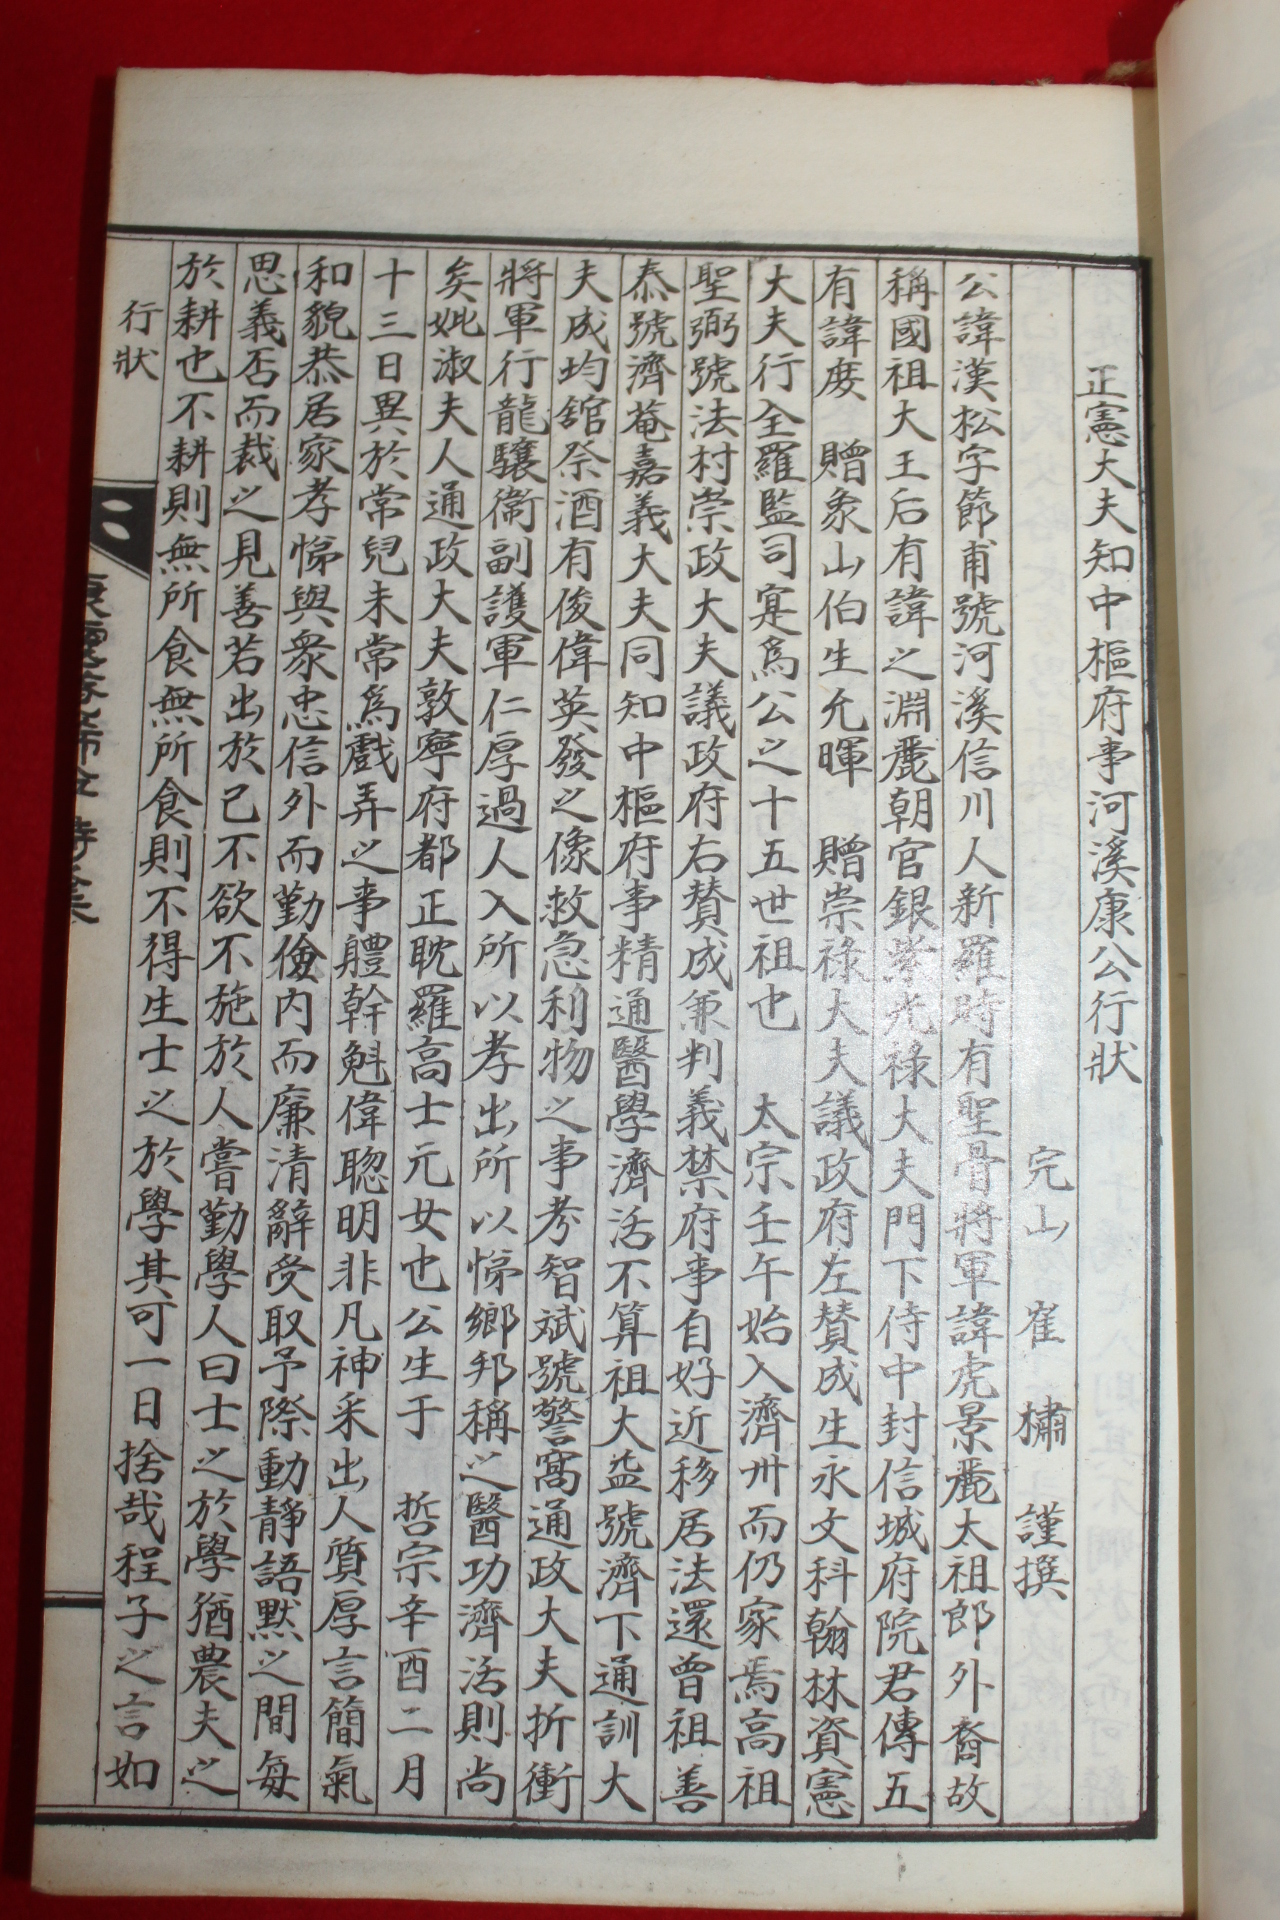 正憲大夫知中樞府事河溪康公行狀
完山 崔 橚 謹撰
公諱漢松字節甫號河溪信川人新羅時有聖骨將軍諱虎景麗太祖郎外裔故
稱國祖大王后有諱之淵麗朝官銀紫光祿大夫門下侍中封信城府院君傳五
有諱度 贈象山伯生允暉 贈崇祿大夫議政府左贊成生永文科翰林資憲
大夫行全羅監司寔爲公之十五世祖也 太宗壬午始入濟州而仍家焉高祖
聖弼號法村崇政大夫議政府右贊成兼判義禁府事自好近移居法還曾祖善
泰號濟菴嘉義大夫同知中樞府事精通醫學濟活不算祖大益號濟下通訓大
夫成均舘祭酒有俊偉英發之像救急利物之事考智斌號警窩通政大夫折衝
將軍行龍驤衛副護軍仁厚過人入所以孝出所以悌鄉邦稱之醫功濟活則尚
矣妣淑夫人通政大夫敦寧府都正耽羅高士元女也公生于 哲宗辛酉二月
十三日異於常兒未常爲戲弄之事軆幹魁偉聰明非凡神采出人質厚言簡氣
和貌恭居家孝悌與衆忠信外而勤儉內而廉清辭受取予際動靜語默之間每
思義否而裁之見善若出於己不欲不施於人嘗勤學人曰士之於學猶農夫之
於耕也不耕則無所食無所食則不得生士之於學其可一日捨哉程子之言如
行狀